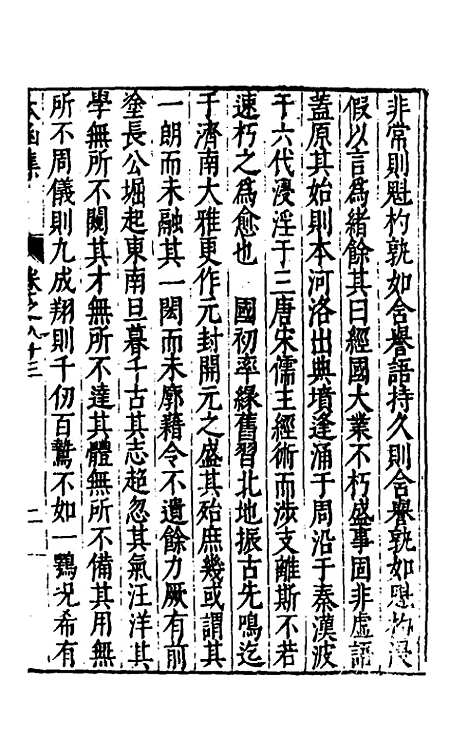 非常則魁杓孰如含譽語持久則含譽孰如魁杓浸
假以言爲緒餘其曰經國大業不朽盛事固非虛語
蓋原其始則本河洛出典墳逢涌于周沿于秦漢波
于六代浸淫于三唐宋儒主經術而涉支離斯不若
速朽之爲愈也 國初率緣舊習北地振古先鳴迄
于濟南大雅更作元封開元之盛其殆庶幾或謂其
一朗而未融其一閎而未廓藉令不遺餘力厥有前
塗長公堀起東南旦暮千古其志超忽其氣汪洋其
學無所不闚其才無所不達其體無所不備其用無
所不周儀則九成翔則千仞百鷙不如一鶚況希有
太函集 卷之八十三 二